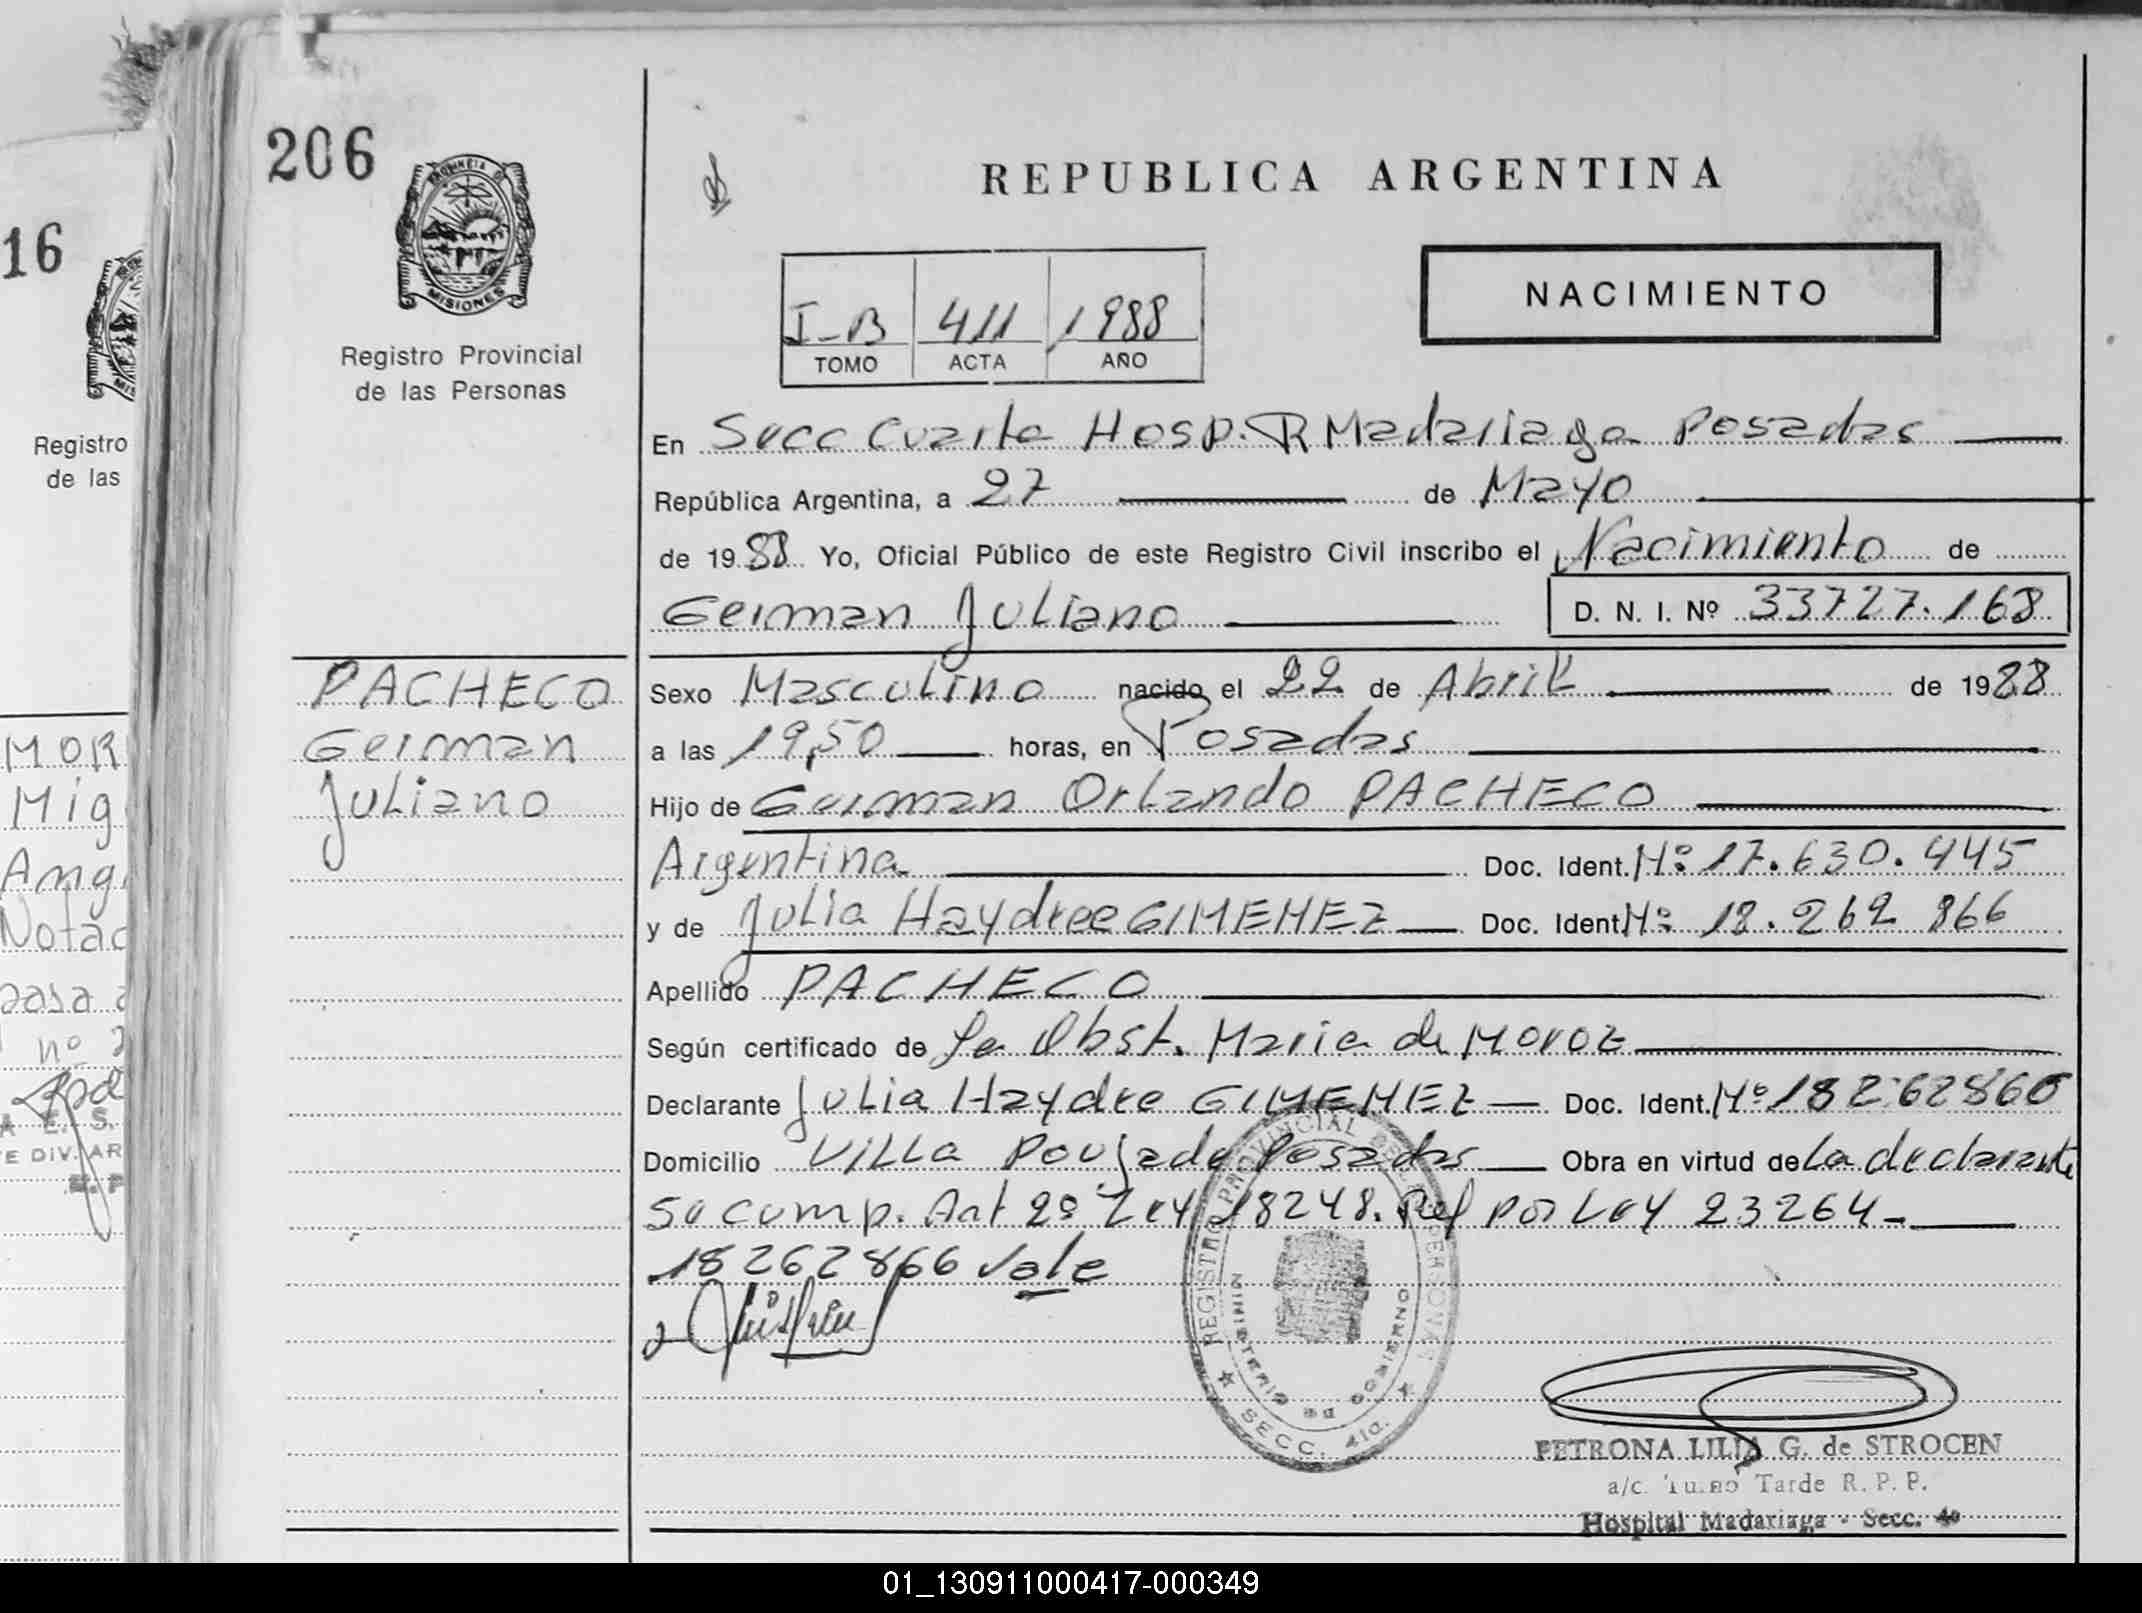 206
PROVINCIA D
MISIONES
Registro Provincial
de las Personas
REPUBLICA ARGENTINA
NACIMIENTO
I-B 411 1988
TOMO ACTA AÑO
En Secc Cuarta Hosp. R Madariaga Posadas
República Argentina, a 27 de Mayo
de 1988 Yo, Oficial Público de este Registro Civil inscribo el Nacimiento de
German Juliano D. N. I. Nº 33727.168
PACHECO
German
Juliano
Sexo Masculino nacido el 22 de Abril de 1988
a las 19,50 horas, en Posadas
Hijo de German Orlando PACHECO
Argentina Doc. Ident. Nº 17.630.445
y de Julia Haydree GIMENEZ Doc. Ident. Nº 18.262 866
Apellido PACHECO
Según certificado de La Obst. Maria de Moroz
Declarante Julia Haydre GIMENEZ Doc. Ident. Nº 18262860
Domicilio Villa Poujade Posadas Obra en virtud de La declarante
Su comp. Art 2º Ley 18248. Ref por Ley 23264-
18262866 Vale
REGISTRO PROVINCIAL DE LAS PERSONAS
MINISTERIO DE GOBIERNO
SECC. 4ta.
PETRONA LILIA G. de STROCEN
a/c. Turno Tarde R. P. P.
Hospital Madariaga - Secc. 4º
16
MIS
Registro
de las
MOR
Mig
Ang
Notac
nº 2
A E. S.
E DIV. AR
01_130911000417-000349